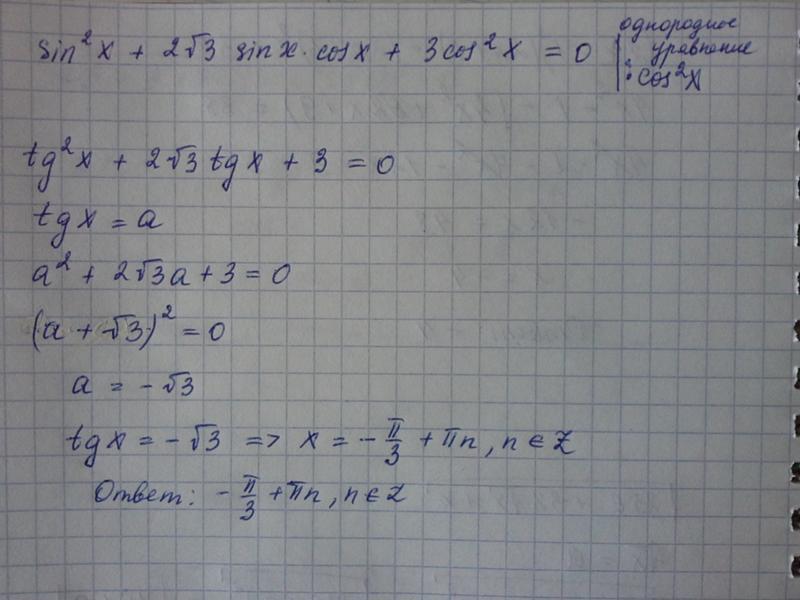 sin²x + 2√3 sinx · cosx + 3cos²x = 0 | однородное уравнение : cos²x
tg²x + 2√3 tgx + 3 = 0
tgx = a
a² + 2√3a + 3 = 0
(a + √3)² = 0
a = -√3
tgx = -√3 => x = -π/3 + πn, n ∈ Z
Ответ: -π/3 + πn, n ∈ Z